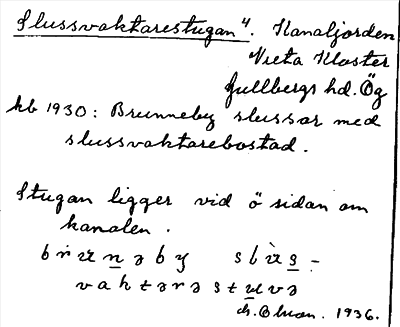 Slussvaktarestugan⁴. Kanaljorden
Vreta Kloster
Gullbergs hd. Ög
kb 1930: Brunneby slussar med
slussvaktarebostad.
Stugan ligger vid ö sidan om
kanalen.
1936.